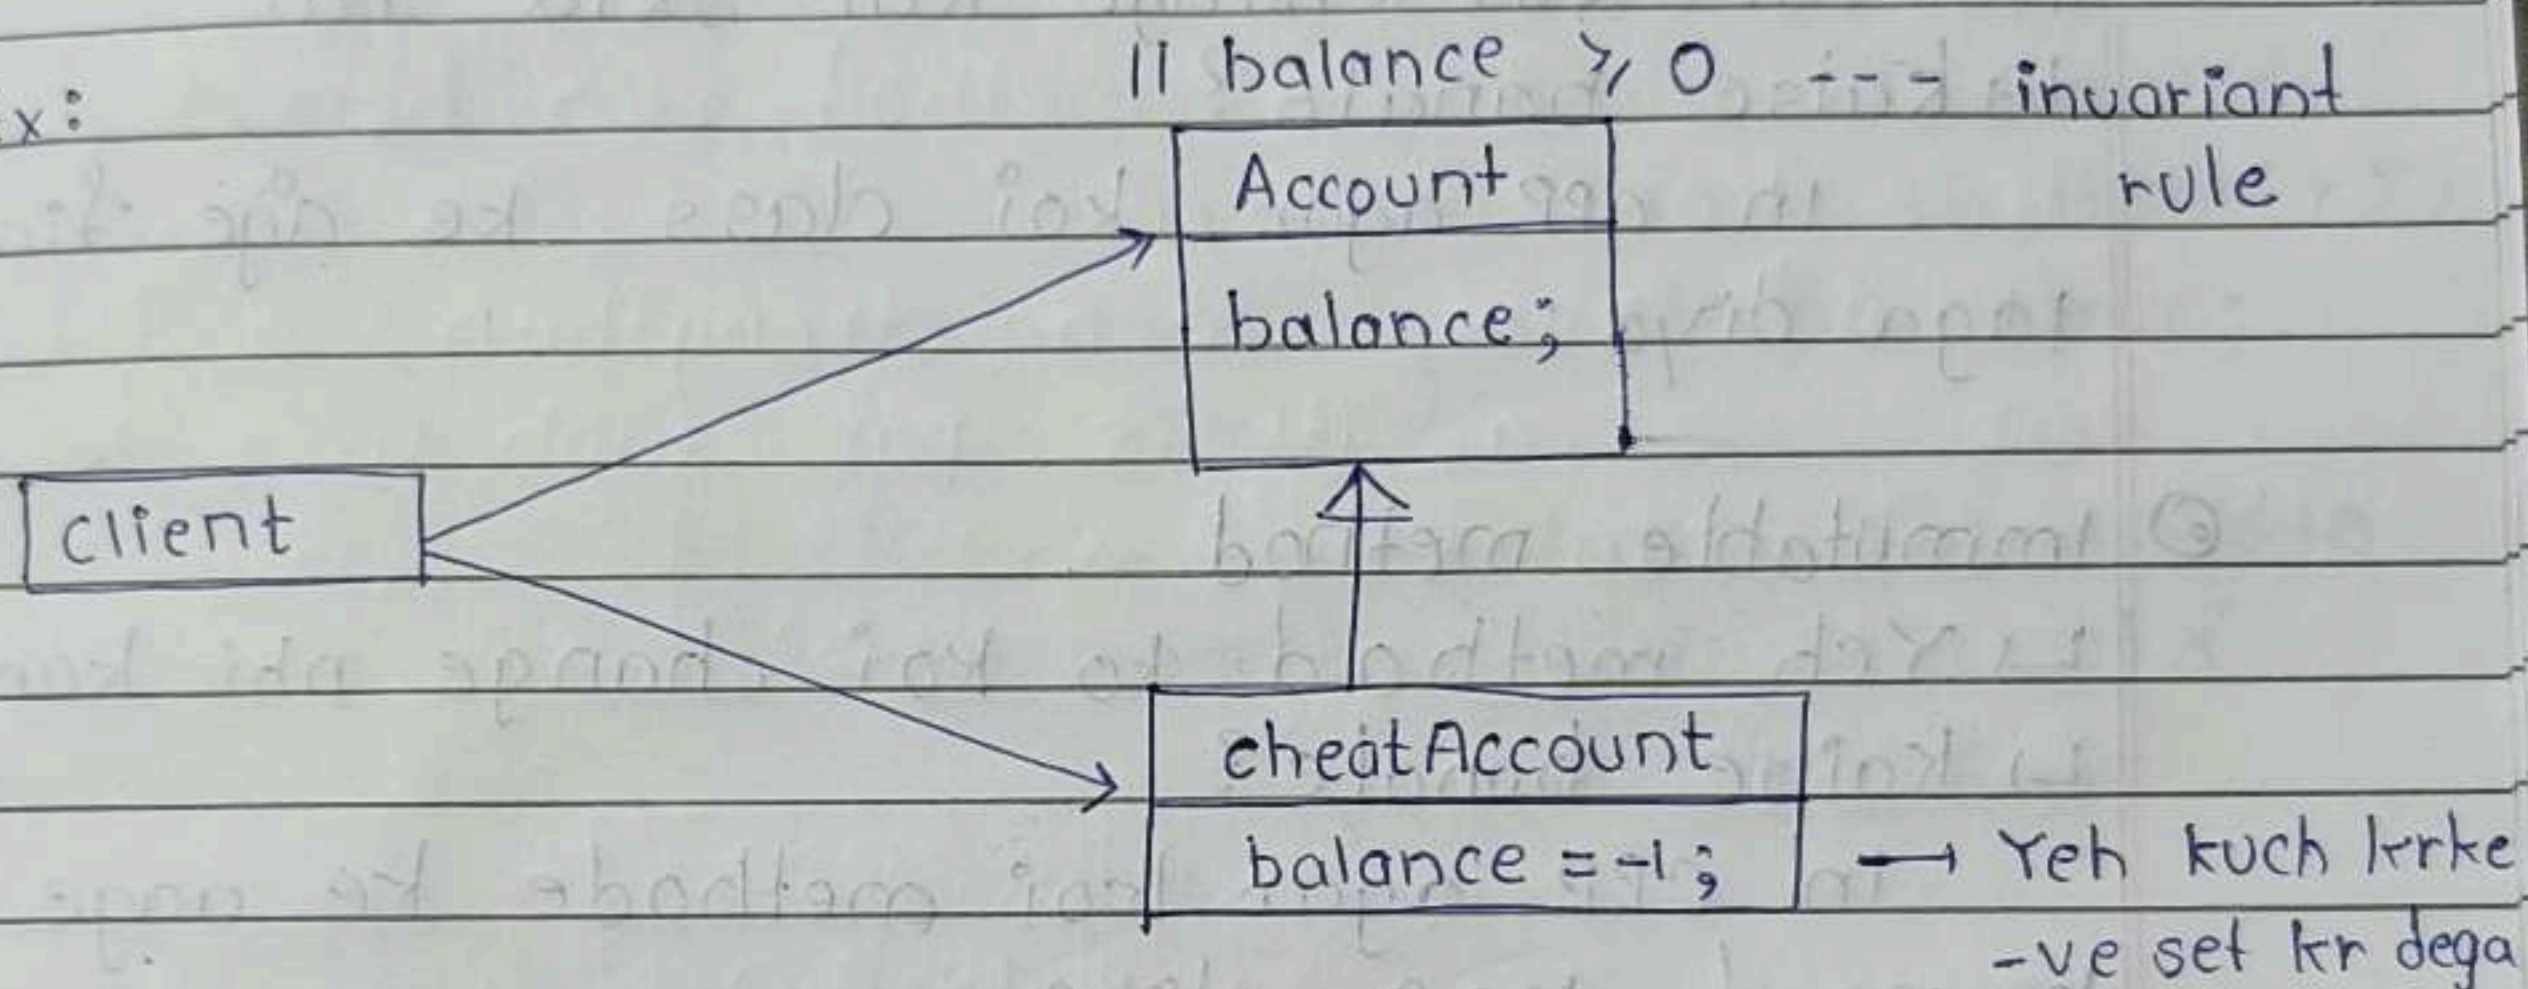 x:
|| balance ⩾ 0 --- invariant
rule
Account
balance;
client
cheatAccount
balance = -1; → Yeh kuch krke
-ve set kr dega